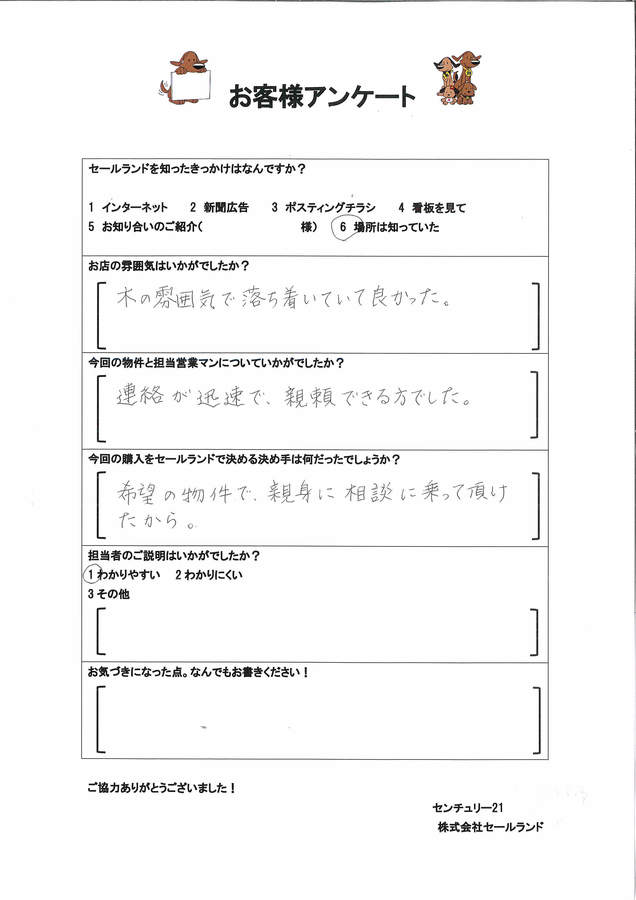 お客様アンケート
セールランドを知ったきっかけはなんですか?
1 インターネット 2 新聞広告 3 ポスティングチラシ 4 看板を見て
5 お知り合いのご紹介( 様) 6 場所は知っていた
お店の雰囲気はいかがでしたか?
木の雰囲気で落ち着いていて良かった。
今回の物件と担当営業マンについていかがでしたか?
連絡が迅速で、親頼できる方でした。
今回の購入をセールランドで決める決め手は何だったでしょうか?
希望の物件で、親身に相談に乗って頂け
たから。
担当者のご説明はいかがでしたか?
1 わかりやすい 2 わかりにくい
3 その他
お気づきになった点。なんでもお書きください!
ご協力ありがとうございました!
センチュリー21
株式会社セールランド